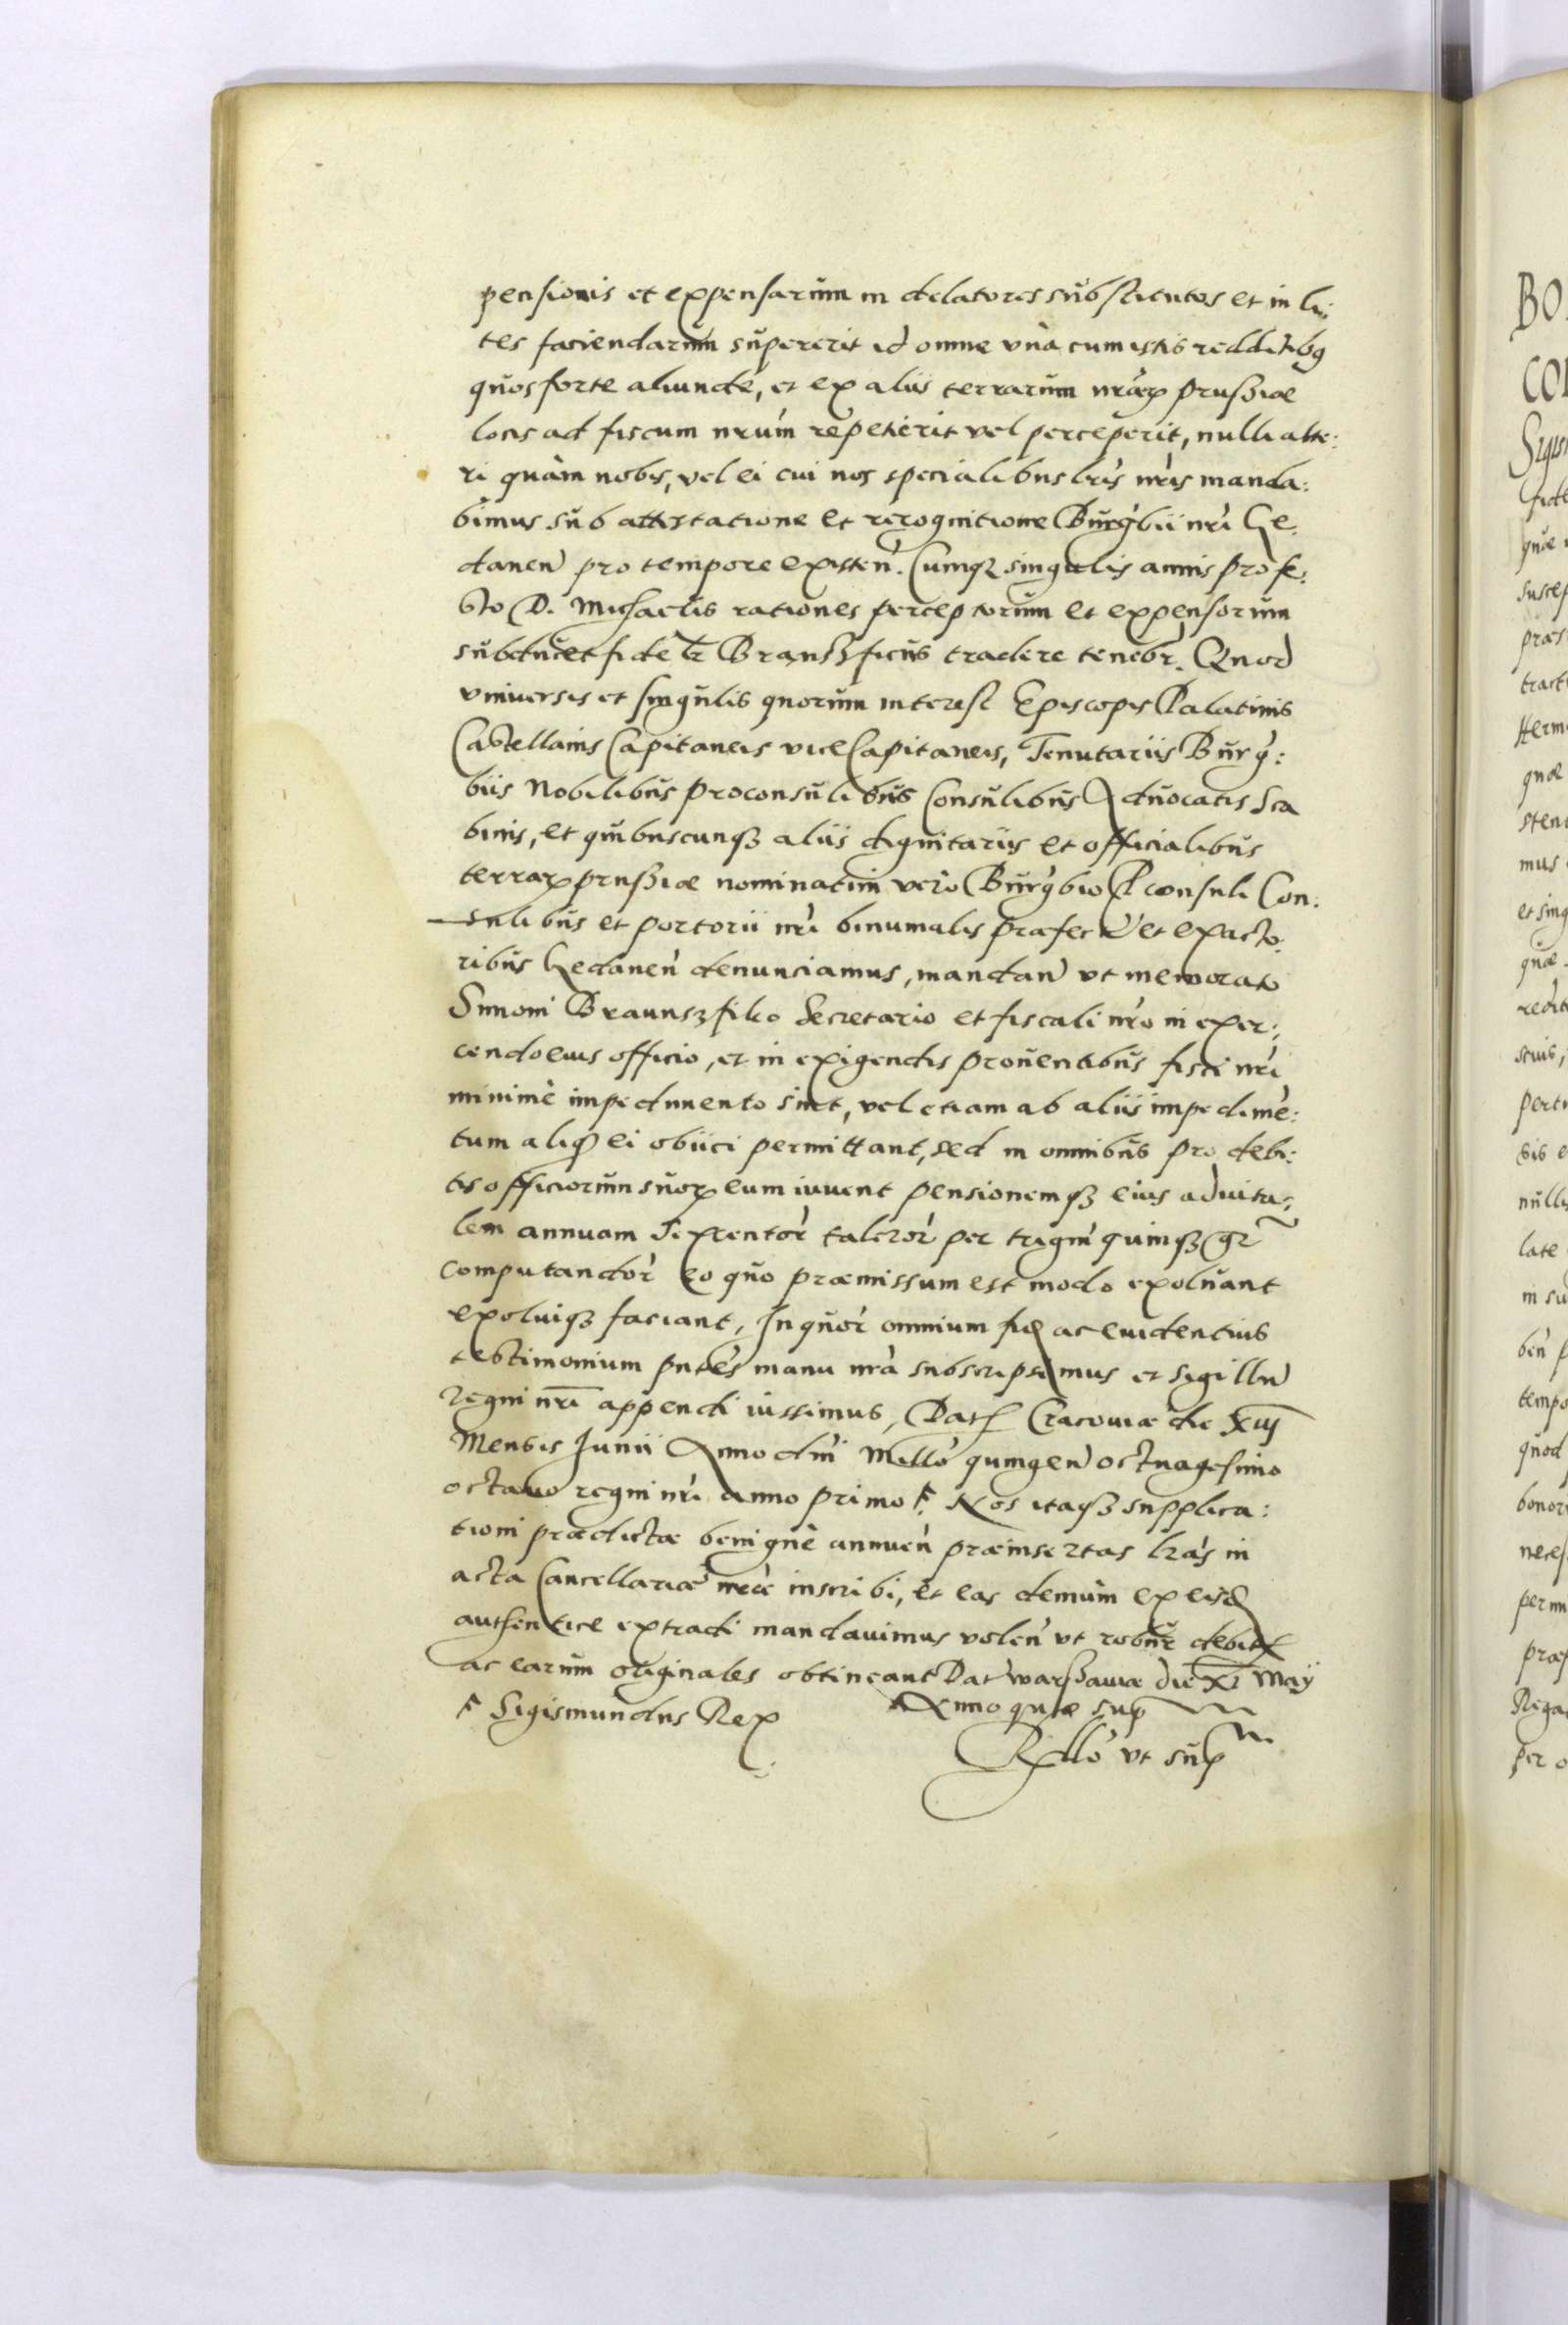 pensionis et expensarum in delatores substitutos et in li:
tes faciendarum supererit id omne vnà cum istis redditibq
quos forte aliunde, et ex aliis terrarum nrarx prussiae
locis ad fiscum nrum repetierit vel perceperit, nulli alte:
ri quàm nobis, vel ei cui nos specialibus lris nris manda:
bimus sub attestatione et recognitione Burgbii nri Ge:
danen pro tempore existen. Cumqz singulis annis pro fe:
sto D. Michaelis rationes perceptorum et expensorum
subducet fidelr Branszficus tradere tenebr. Quod
vniuersis et singulis quorum interest Episcopis Palatinis
Castellanis Capitaneis viceCapitaneis, Tenutariis Burg:
biis Nobilibus proconsulibus Consulibus Aduocatis Sca
binis, et quibuscunqz aliis dignitariis et officialibus
terrarx prussiae nominatim verò Burgbio Pconsuli Con:
sulibus et portorii nri binumalis praefecto et exacto:
ribus Gedanen denunciamus, mandan vt memorato
Simoni Braunszfiko Secretario et fiscali nro in exer:
cendo eius officio, et in exigendis prouentibus fisci nri
minimè impedimento sint, vel etiam ab aliis impedime:
tum aliqd ei obiici permittant, sed in omnibus pro debi:
tis officiorum suorx eum iuuent pensionemqz eius aduita:
lem annuam Sexcentor taleror per trigin quinqz gr
computandor eo quo praemissum est modo exoluant
exoluiqz faciant, In quor omnium fid ac euidentius
testimonium pntes manu nra subscripsimus et sigillu
Regni nri appendi iussimus, Dat Cracouiae die xiij
Mensis Junii Anno dni Millo quingen octuagesimo
octauo regni nri anno primo. Nos itaqz supplica:
tioni praedictae benignè annuen praeinsertas lras in
acta Cancellariae nrae inscribi, et eas demùm ex eisd
authentice extradi mandauimus volen vt robur debit
ac earum originales obtineant Dat warssauiae die xi Maij
Sigismundus Rex Anno quo sup
Rello vt sup